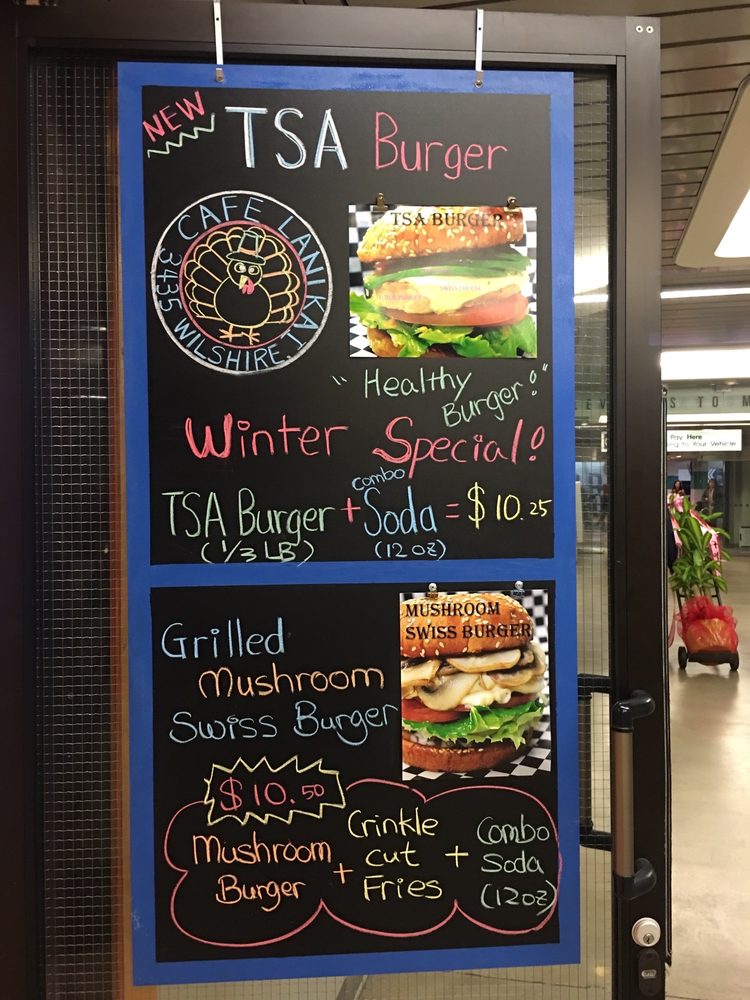 NEW
TSA Burger
CAFE LANIKAI
3435 WILSHIRE.
TSA BURGER
SWISS CHEESE
"Healthy
Burger!"
Winter Special!
combo
TSA Burger + Soda = $10.25
(1/3 LB) (12 OZ)
MUSHROOM
SWISS BURGER
Grilled
Mushroom
Swiss Burger
$10.50
Mushroom
Burger
+
Crinkle
cut
Fries
+
Combo
Soda
(12oz)
Pay Here
to Your Vehicle